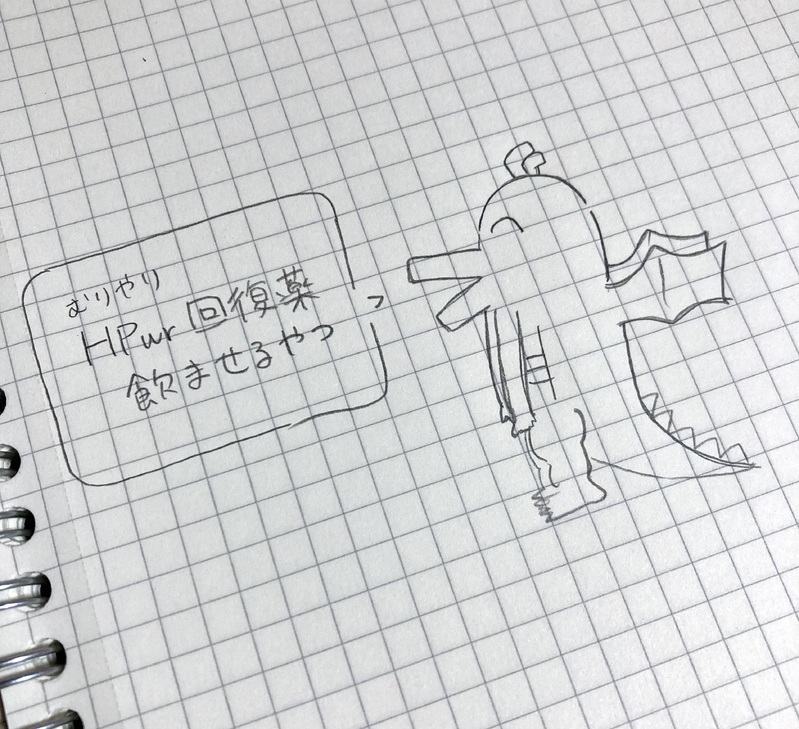 むりやり
HPwr 回復薬
飲ませるやつ